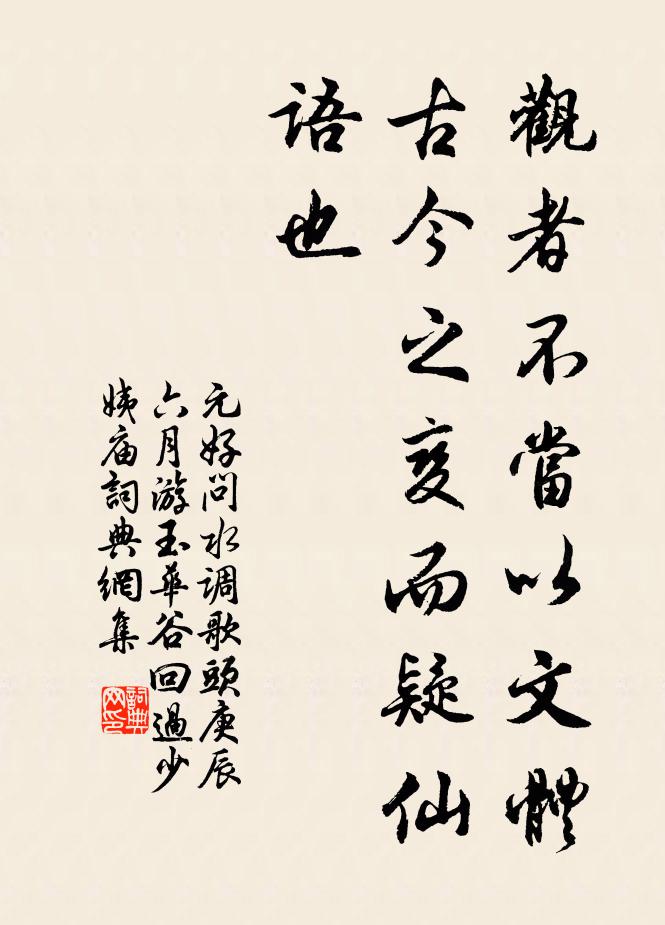 觀者不當以文體
古今之変而疑仙
語也
元好问水调歌頭庚辰
六月游玉華谷回過少
姨庙詞典網集
詞典
网印